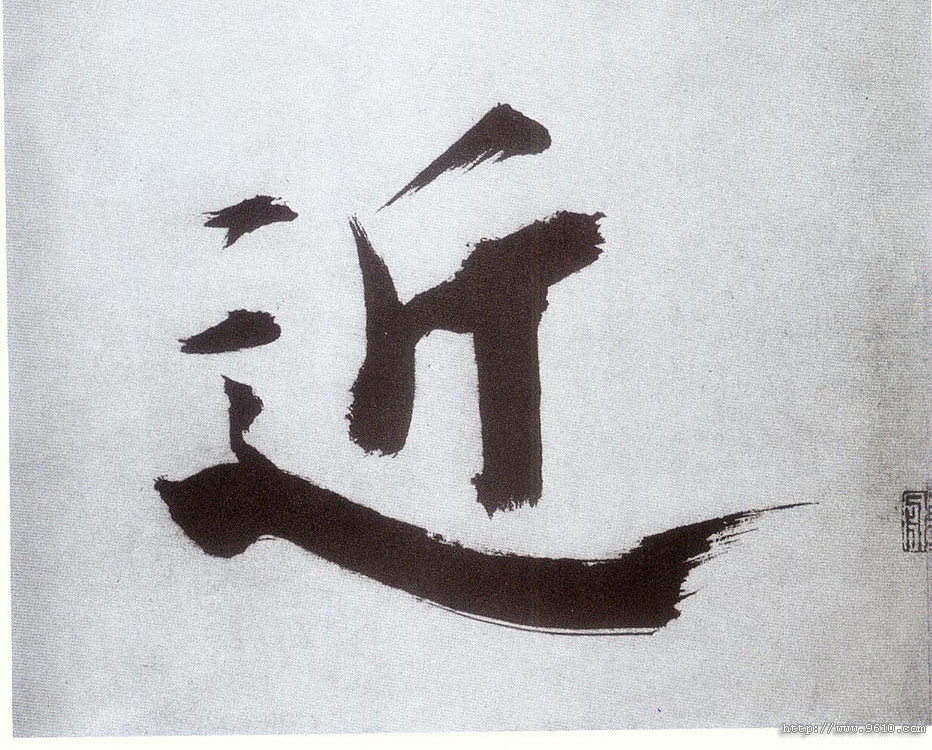 近
http://www.9610.com